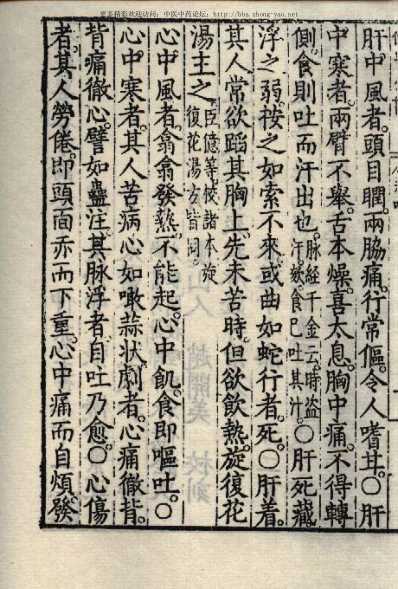 更多精彩欢迎访问：中医中药论坛：http://bbs.zhong-yao.net
肝中風者。頭目瞤。兩脇痛。行常傴。令人嗜甘。○肝
中寒者。兩臂不舉。舌本燥。喜太息。胸中痛。不得轉
側。食則吐而汗出也。脉經千金云。時盗汗。欬。食已吐其汁。○肝死藏。
浮之弱。按之如索不來。或曲如蛇行者。死。○肝着。
其人常欲蹈其胸上。先未苦時。但欲飲熱。旋復花
湯主之。臣億等校諸本旋復花湯方皆同。
心中風者。翕翕發熱。不能起。心中飢。食即嘔吐。○
心中寒者。其人苦病心如噉蒜狀。劇者。心痛徹背。
背痛徹心。譬如蠱注。其脉浮者。自吐乃愈。○心傷
者。其人勞倦。即頭面赤而下重。心中痛而自煩。發